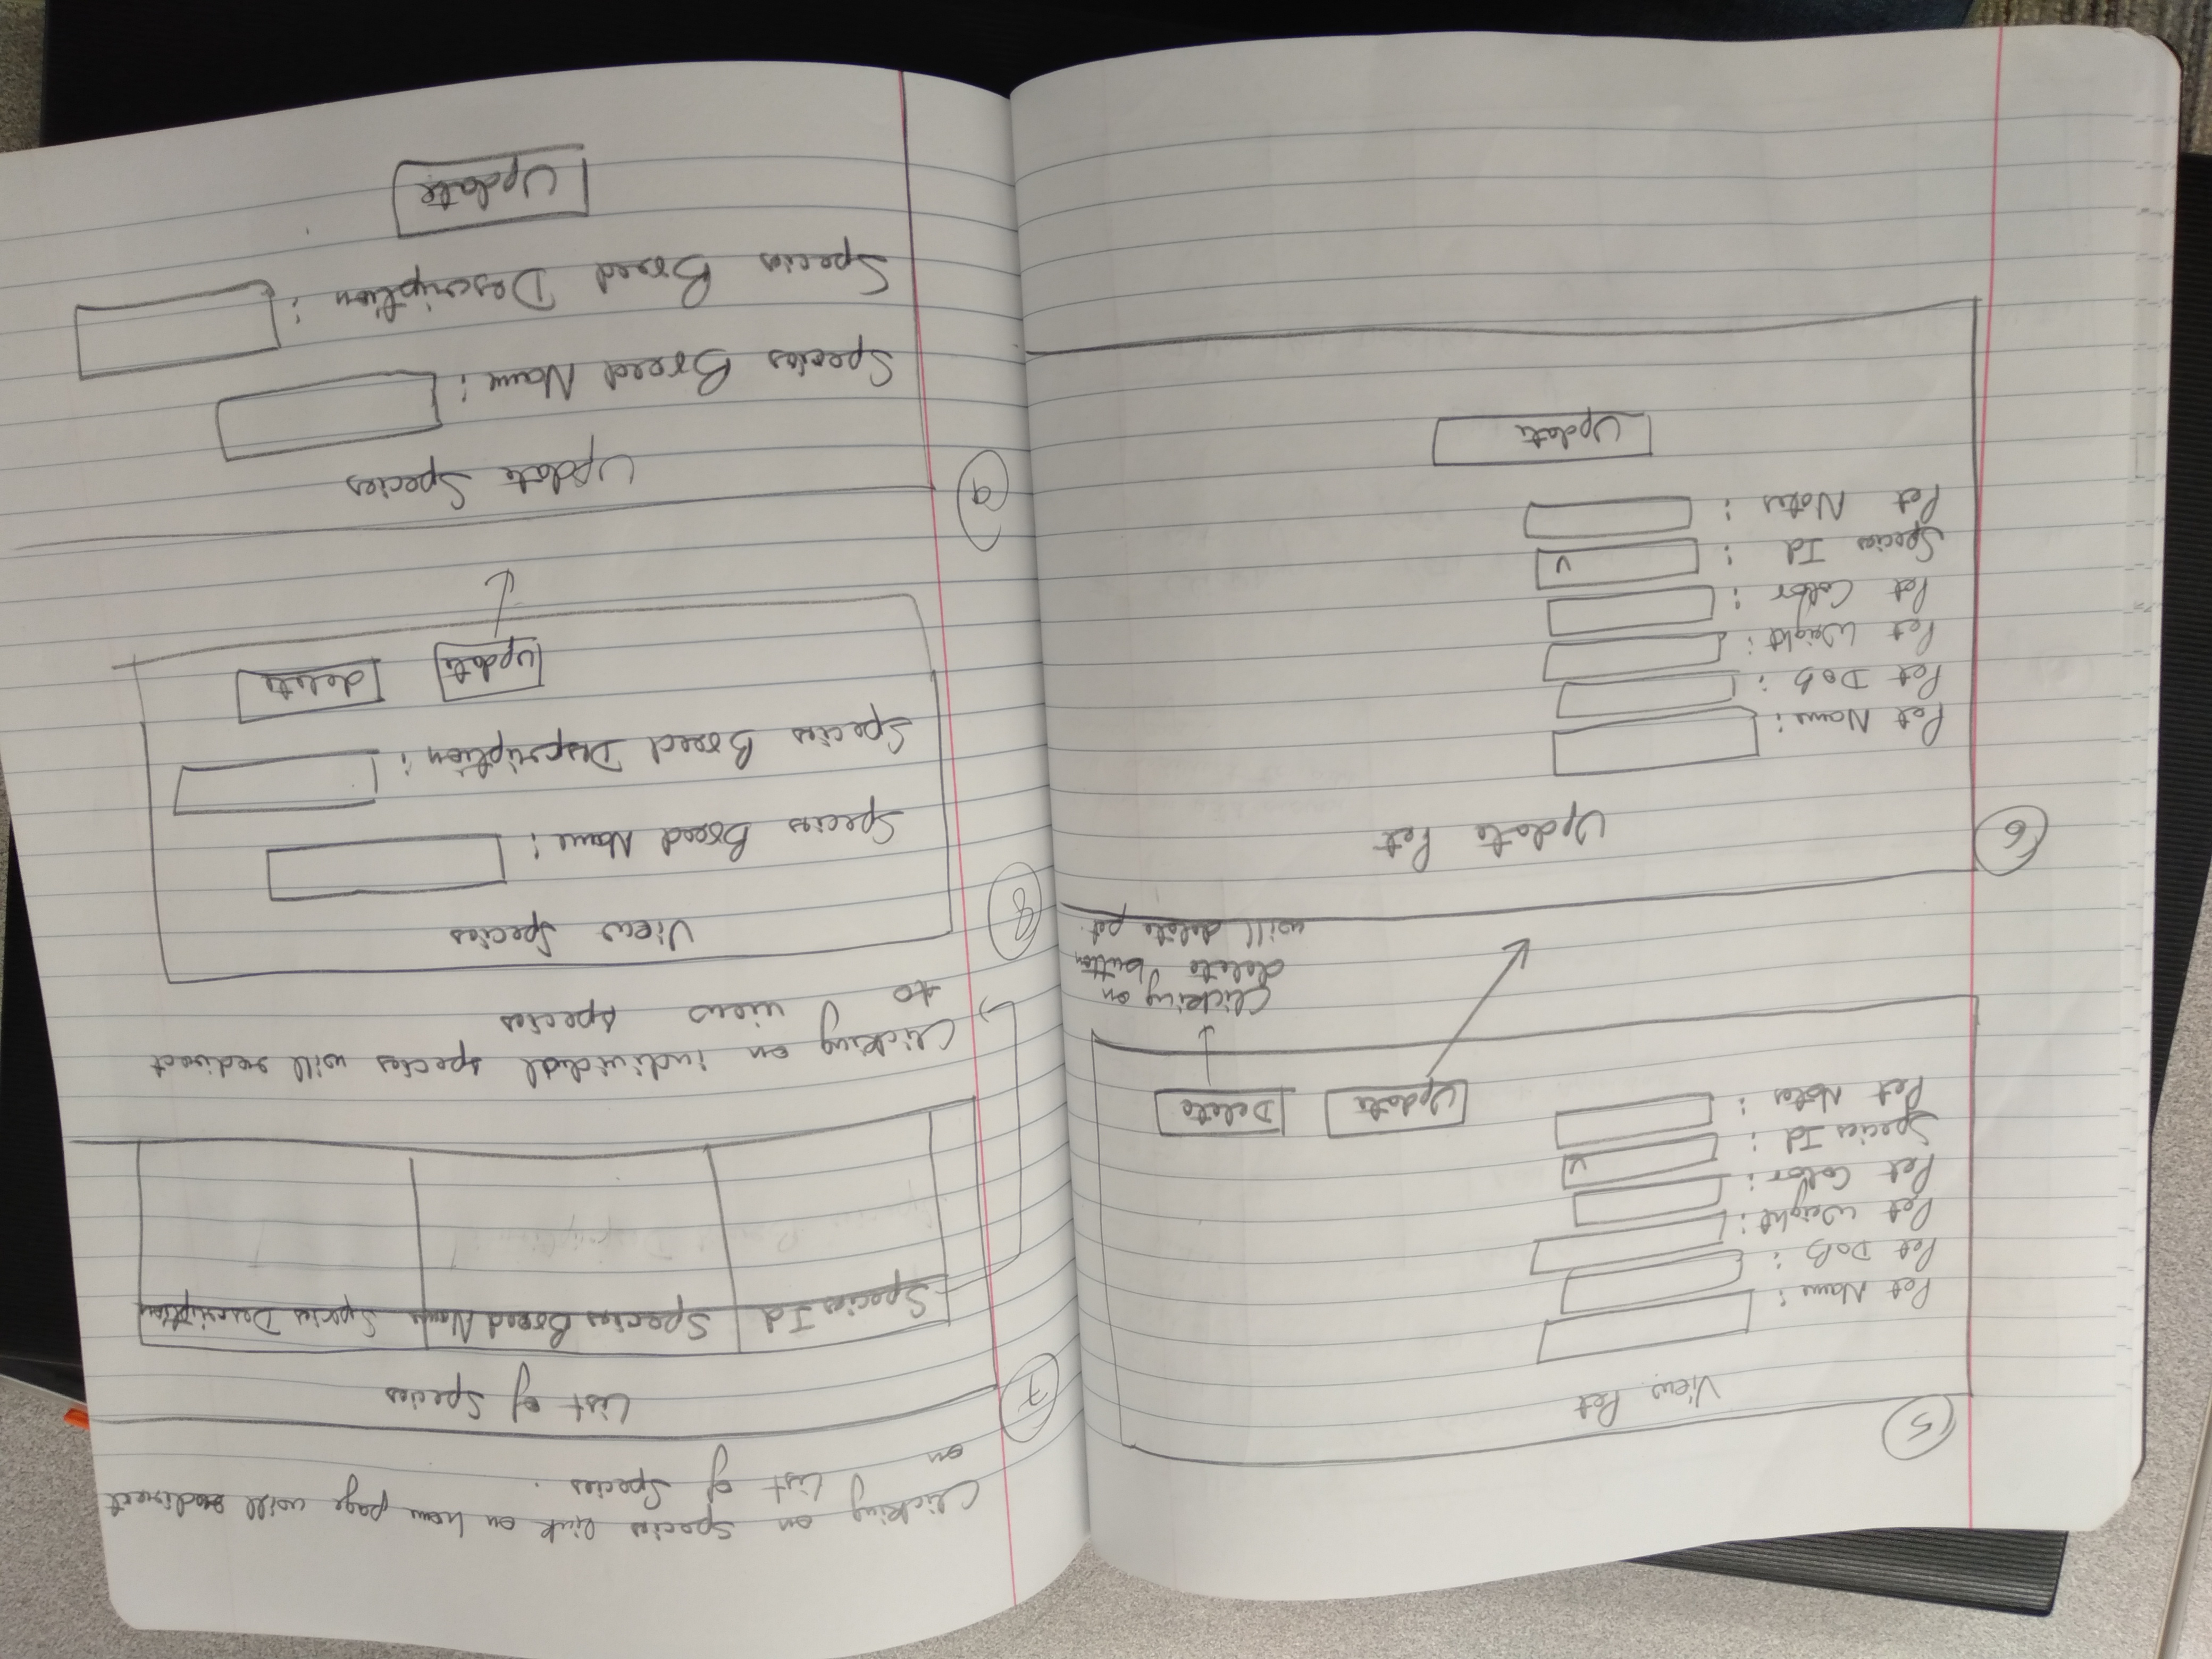 5
View Pet
Pet Name :
Pet DoB :
Pet Weight :
Pet Color :
Species Id :
Pet Notes :
Update Delete
Clicking on
delete button
will delete pet.
6
Update Pet
Pet Name :
Pet DoB :
Pet Weight :
Pet Color :
Species Id :
Pet Notes :
Update
Clicking on species link on home page will redirect
on List of Species.
7
List of Species
Species Id Species Breed Name Species Description
Clicking on individual species will redirect
to view species
8
View Species
Species Breed Name :
Species Breed Description :
update delete
9
Update Species
Species Breed Name :
Species Breed Description :
Update